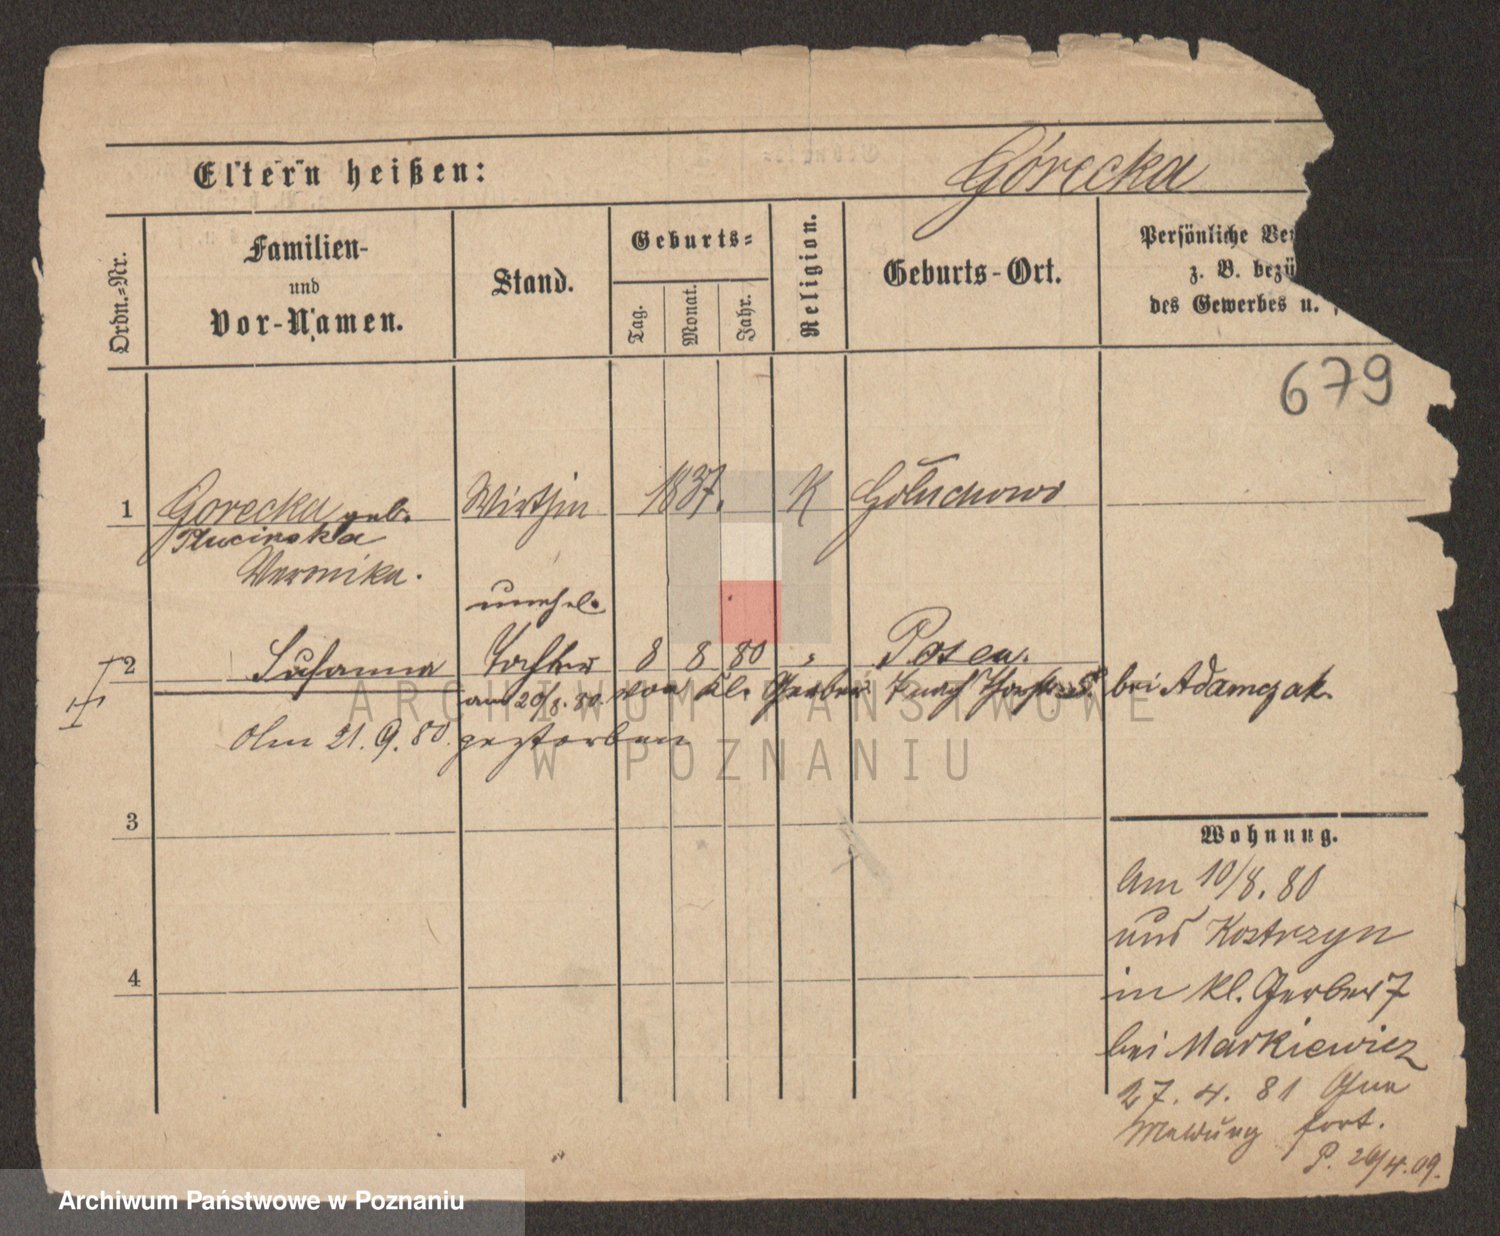 Eltern heißen:
Górecka
Ordn.=Nr.
Familien-
und
Vor-Namen.
Stand.
Geburts=
Tag.
Monat.
Jahr.
Religion.
Geburts-Ort.
Persönliche
z. B.
des Gewerbes u.
679
1 Gorecka geb. Wirthin 1837. K Goluchowo
Plucinska
Weronika.
unehel.
2 Susanna Tochter 8 8 80 Posen.
am 20/8. 80. von kl. Gerber 7 nach bei Adamczak.
Am 21. 9. 80. gestorben
3
Wohnung.
Am 10/8. 80
aus Kostrzyn
in kl. Gerber 7
bei Markiewicz
4
27. 4. 81 Ohne
Meldung fort.
P. 26/4.09.
ARCHIWUM PAŃSTWOWE
W POZNANIU
Archiwum Państwowe w Poznaniu